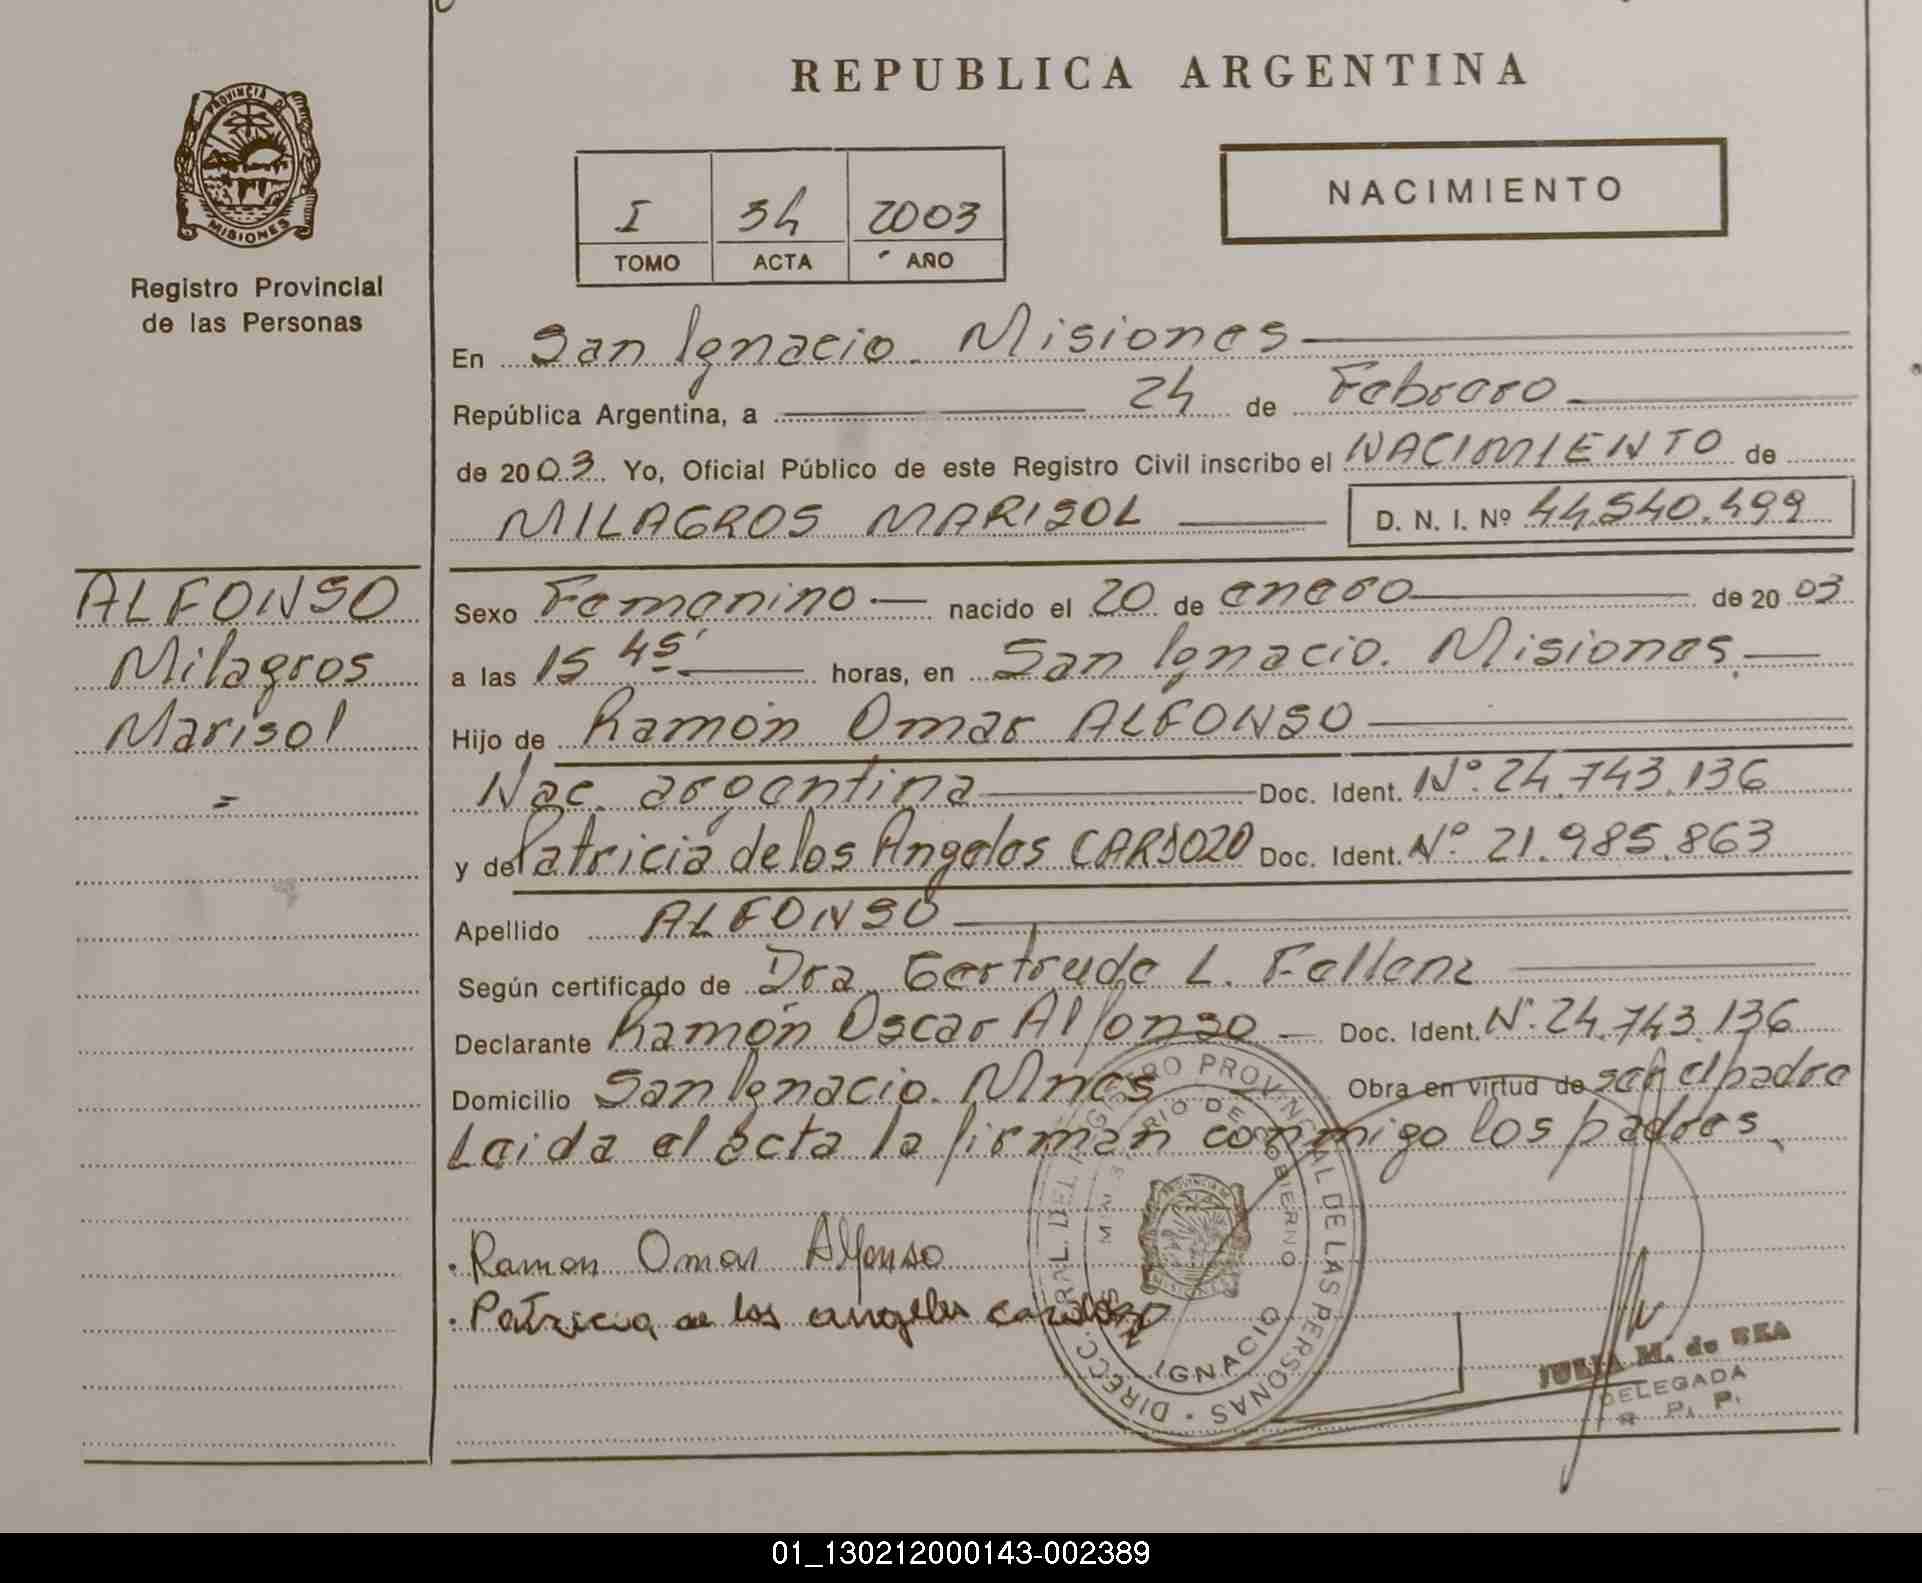 REPUBLICA ARGENTINA
PROVINCIA DE
MISIONES
Registro Provincial
de las Personas
NACIMIENTO
I 34 2003
TOMO ACTA AÑO
En San Ignacio. Misiones
República Argentina, a 24 de Febrero
de 2003. Yo, Oficial Público de este Registro Civil inscribo el NACIMIENTO de
MILAGROS MARISOL D. N. I. Nº 44.540.499
ALFONSO
Milagros
Marisol
=
Sexo Femenino nacido el 20 de enero de 2003
a las 15 45' horas, en San Ignacio. Misiones.
Hijo de Ramón Omar ALFONSO
Nac. argentina Doc. Ident. Nº. 24.743.136
y de Patricia de los Angeles CARDOZO Doc. Ident. Nº. 21.985.863
Apellido ALFONSO
Según certificado de Dra. Gertrude L. Fellenz
Declarante Ramón Oscar Alfonso Doc. Ident. Nº. 24.743.136
Domicilio San Ignacio. Mnes Obra en virtud de ser el padre
Leida el acta la firman conmigo los padres.
Ramon Omar Alfonso
Patricia de los angeles cardozo
DIRECC. GRAL. DEL REGISTRO PROVINCIAL DE LAS PERSONAS
MINISTERIO DE GOBIERNO
IGNACIO
JULIA M. de REA
DELEGADA
R. P. P.
01_130212000143-002389